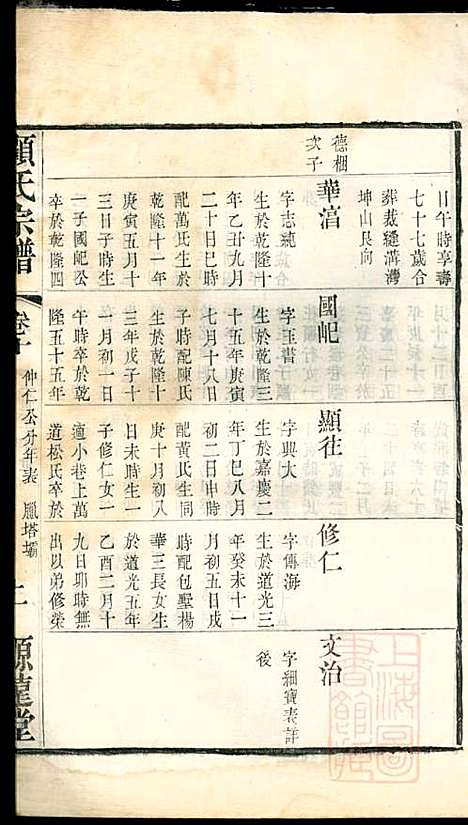 日午時享壽
七十七歲合
葬裁縫溝灣
坤山艮向
德梱
次子
華滈
字志璉
生於乾隆十
年乙丑九月
二十日巳時
配萬氏生於
乾隆十一年
庚寅五月十
三日子時生
一子國屺公
卒於乾隆四
國屺
字玉書
生於乾隆三
十五年庚寅
七月十八日
子時配陳氏
生於乾隆十
三年戊子十
一月初一日
午時卒於乾
隆五十五年
顯往
字興大
生於嘉慶二
年丁巳八月
初二日申時
配黃氏生同
庚十月初八
日未時生一
子修仁女一
適小巷上萬
道松氏卒於
修仁
字傳海
生於道光三
年癸未十一
月初五日戌
時配包墅楊
華三長女生
於道光五年
乙酉二月十
九日卯時無
出以弟修榮
文治
字細寶表詳
後
顧氏宗譜
卷十
仲仁公分年表
鳳塔壩
二
源蘧堂
上海圖書館藏